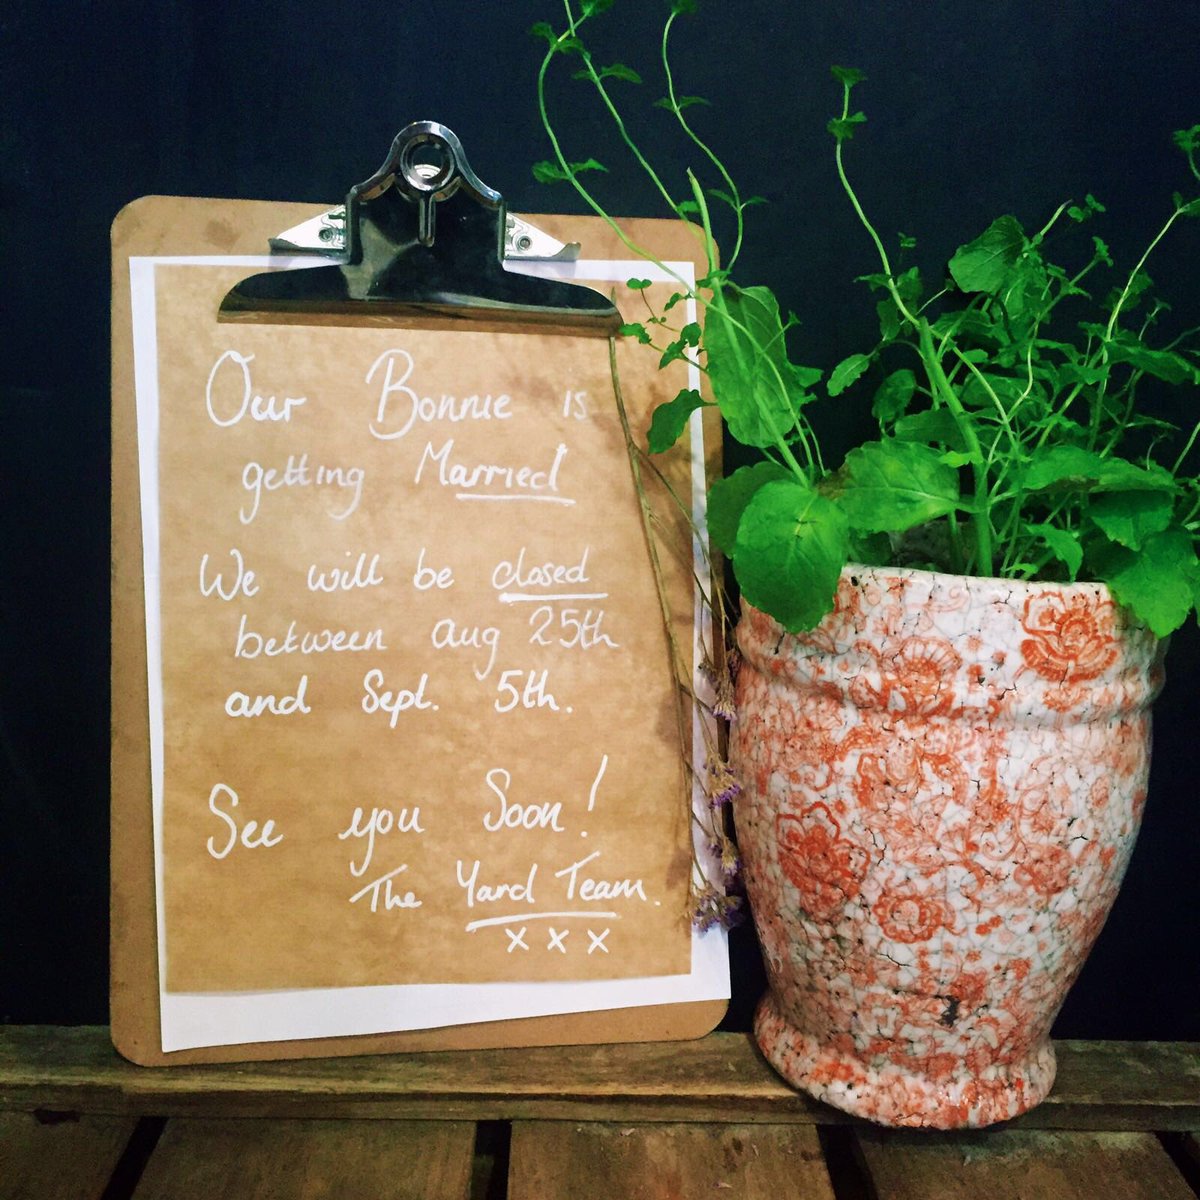 Our Bonnie is
getting Married
We will be closed
between aug 25th
and Sept. 5th.
See you Soon!
The Yard Team.
x x x